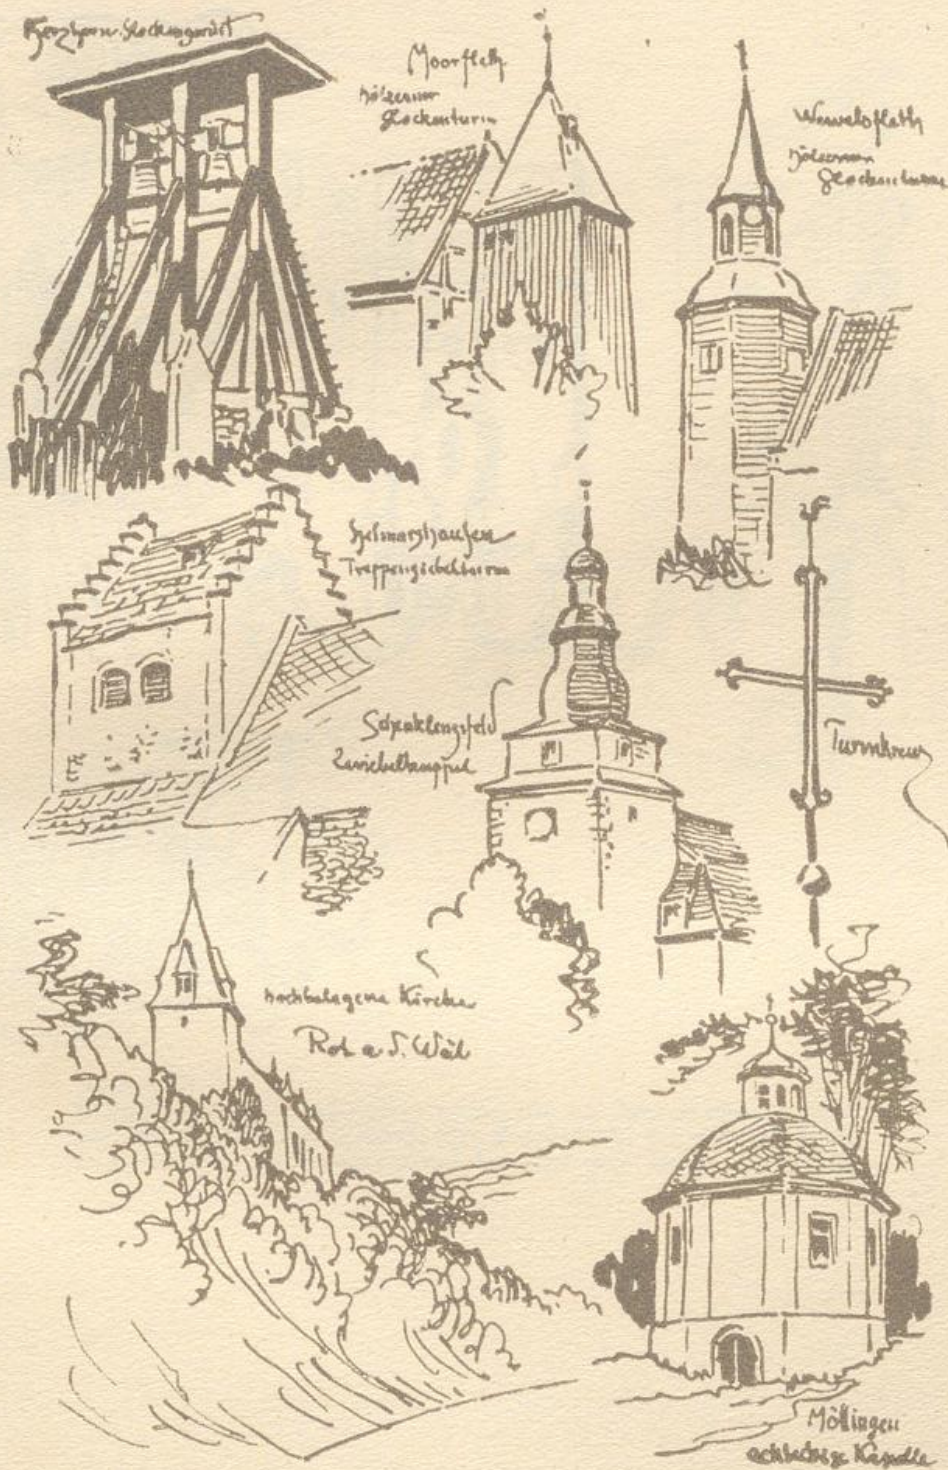 Herzhorn. Glockengerüst
Moorfleth
hölzerner
Glockenturm
Wewelsfleth
hölzerner
Glockenturm
Helmarshausen
Treppengiebelturm
Schenklengsfeld
Zwiebelkuppel
Turmkreuz
hochgelegene Kirche
Rot a. d. Wät
Möllingen
achteckige Kapelle